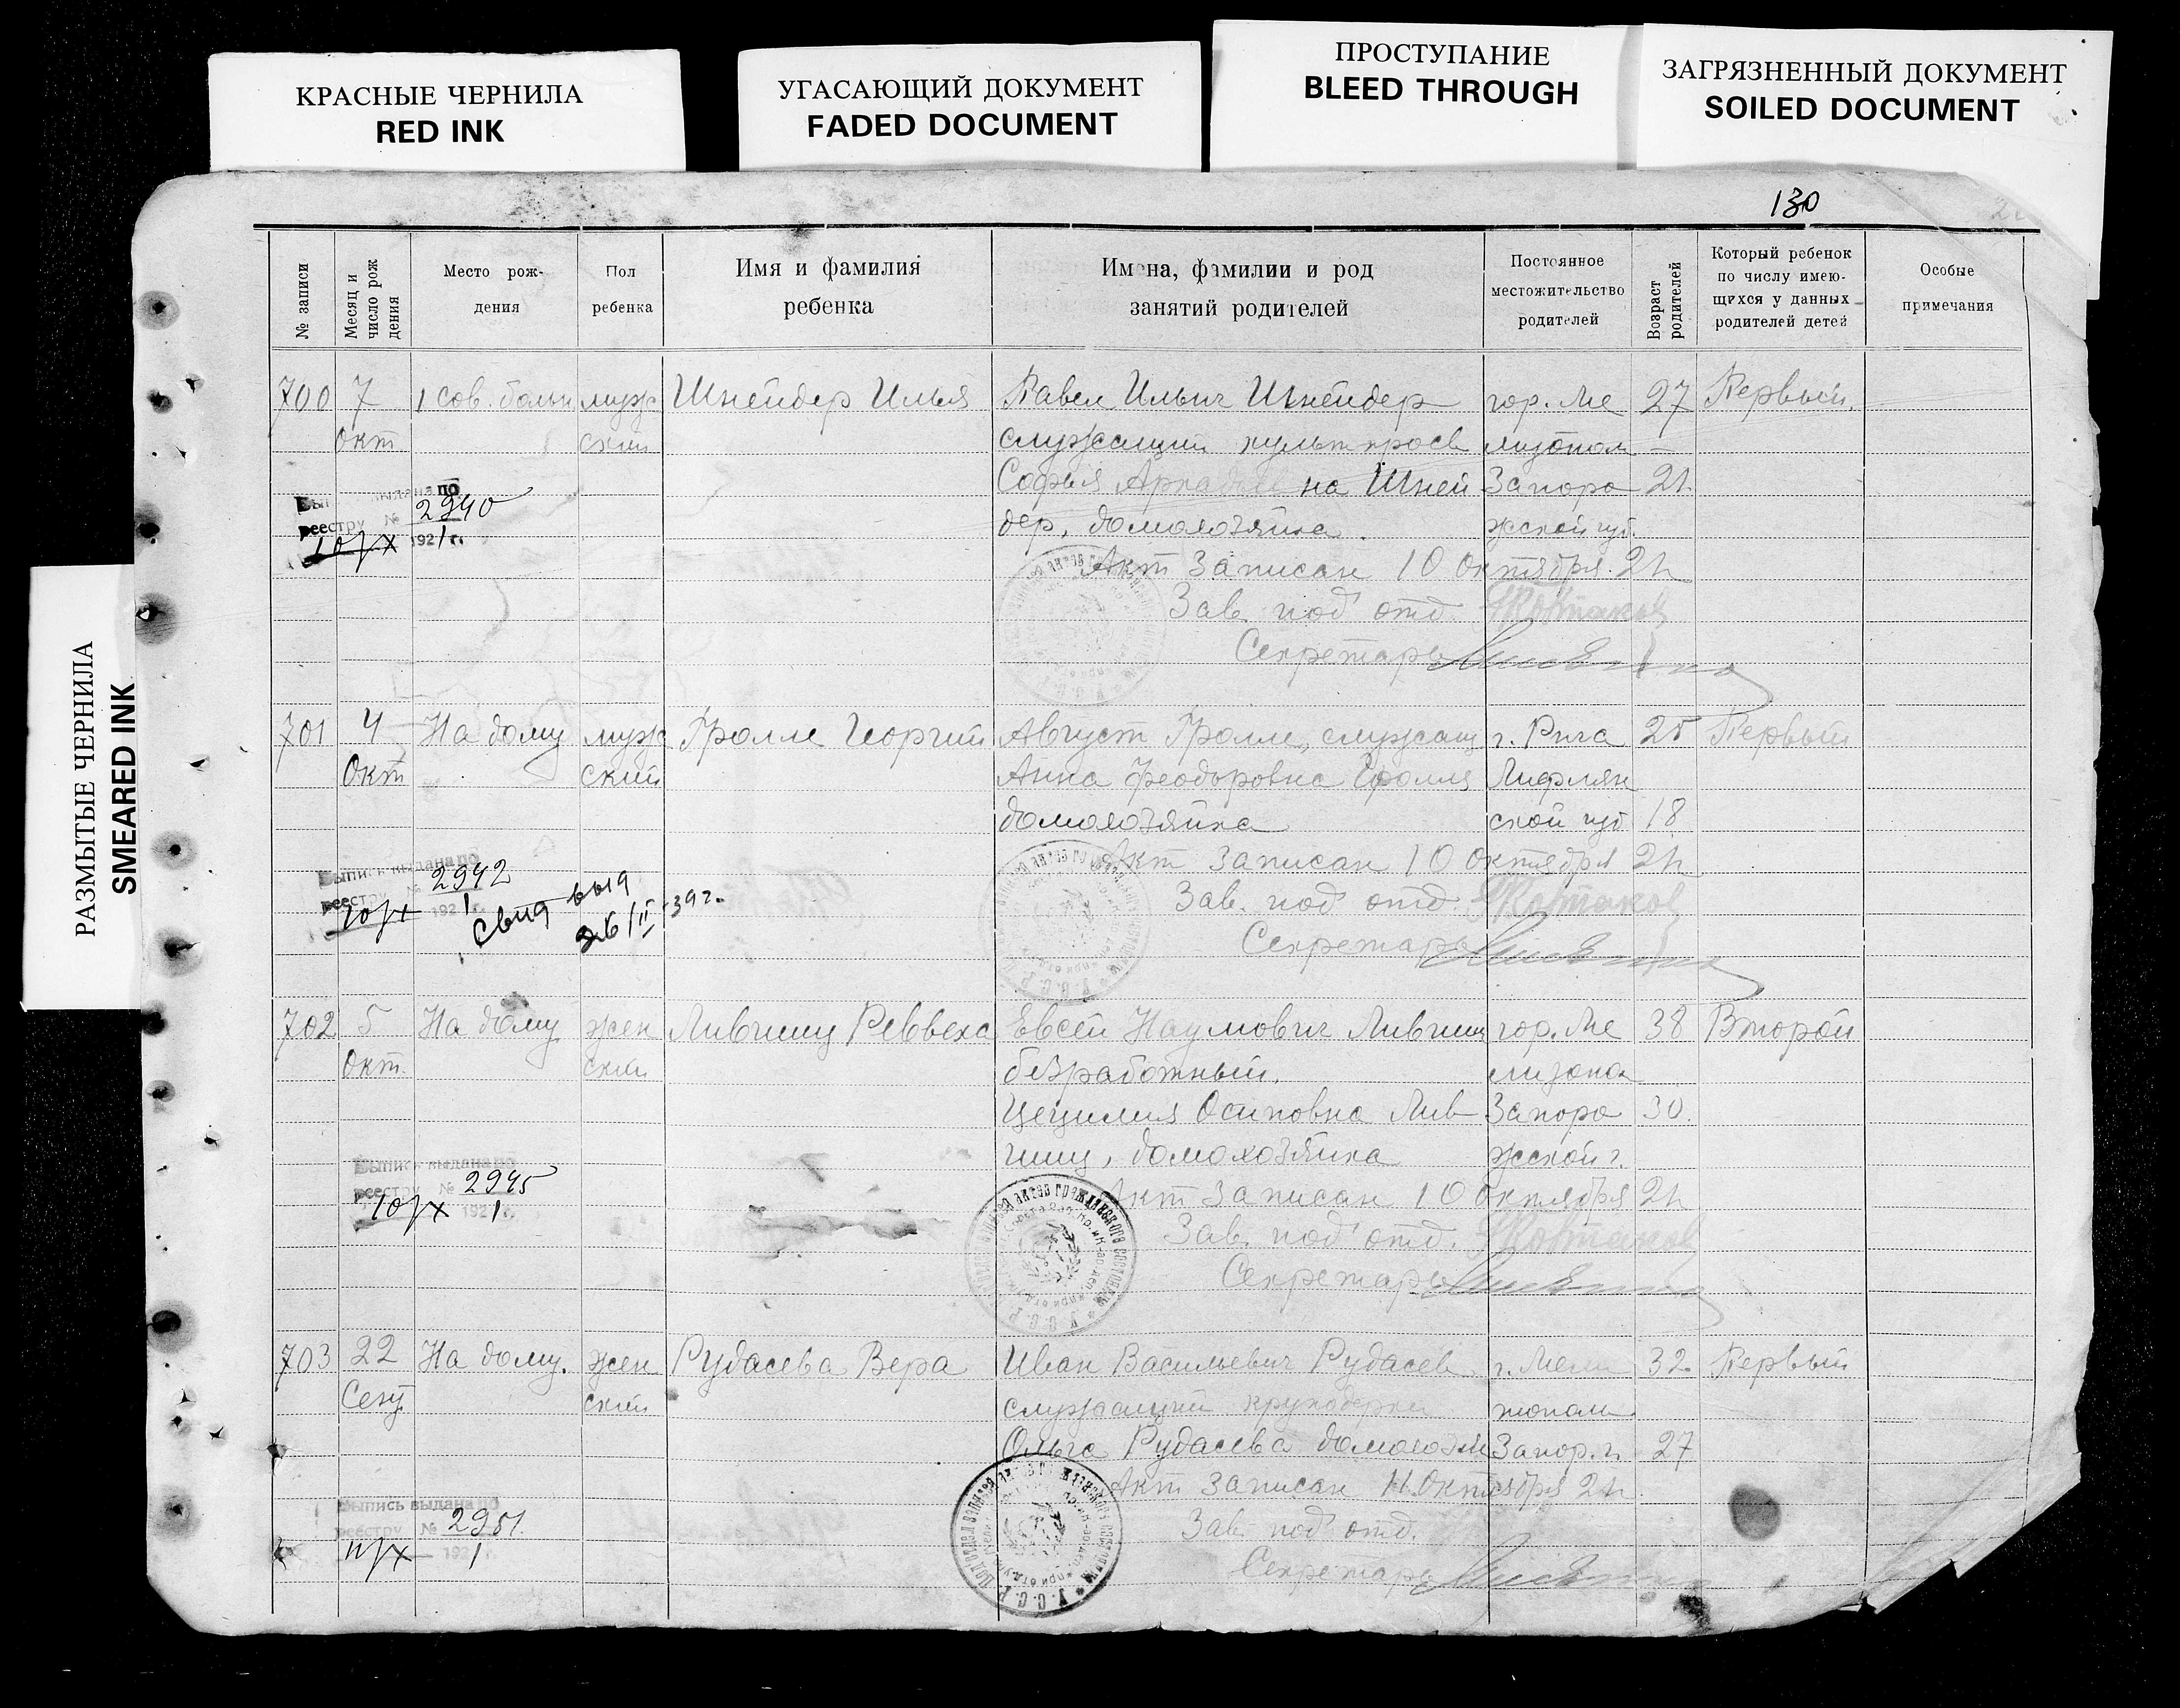 КРАСНЫЕ ЧЕРНИЛА
RED INK
УГАСАЮЩИЙ ДОКУМЕНТ
FADED DOCUMENT
ПРОСТУПАНИЕ
BLEED THROUGH
ЗАГРЯЗНЕННЫЙ ДОКУМЕНТ
SOILED DOCUMENT
РАЗМЫТЫЕ ЧЕРНИЛА
SMEARED INK
130
№ записи
Месяц и
число рож
дения
Место рож-
дения
Пол
ребенка
Имя и фамилия
ребенка
Имена, фамилии и род
занятий родителей
Постоянное
местожительство
родителей
Возраст
родителей
Который ребенок
по числу имею-
щихся у данных
родителей детей
Особые
примечания
700 7 1 сов. больн муж Шнейдер Илья Павел Ильич Шнейдер гор. Ме 27 Первый.
окт ский служащий культпросв литопол
София на Шней Запоро 21
дер, домохозяйка. жской губ.
Выпись выдана по
реестру № 2940
10/X 1921 г.
Акт записан 10 октября 21
Зав. под отд.
Секретарь
701 4 На дому муж Гролле Георгий Август Гролле, служащ г. Рига 25 Первый
Окт ский Анна Феодоровна Гролле Лифлян
домохозяйка ской губ 18
Выпись выдана по
реестру № 2942
10/X 1921 г.
свид выд
26/II 39 г.
Акт записан 10 октября 21
Зав. под отд.
Секретарь
702 5 На дому жен Лившиц Реввека Евсей Наумович Лившиц гор. Ме 38 Второй
Окт. ский безработный.
Цецилия Осиповна Лив Запоро 30.
шиц, домохозяйка жской г.
Выпись выдана по
реестру № 2945
10/X 1921 г.
Акт записан 10 октября 21
Зав. под отд.
Секретарь
703 22 На дому. жен Рудасева Вера Иван Васильевич Рудасев г. Мели 32 Первый
Сент ский служащий топол
Ольга Рудасева домохозяй Запор. г. 27
Выпись выдана по
реестру № 2951
11/X 1921 г.
Акт записан 11 Октября 21
Зав. под отд.
Секретарь